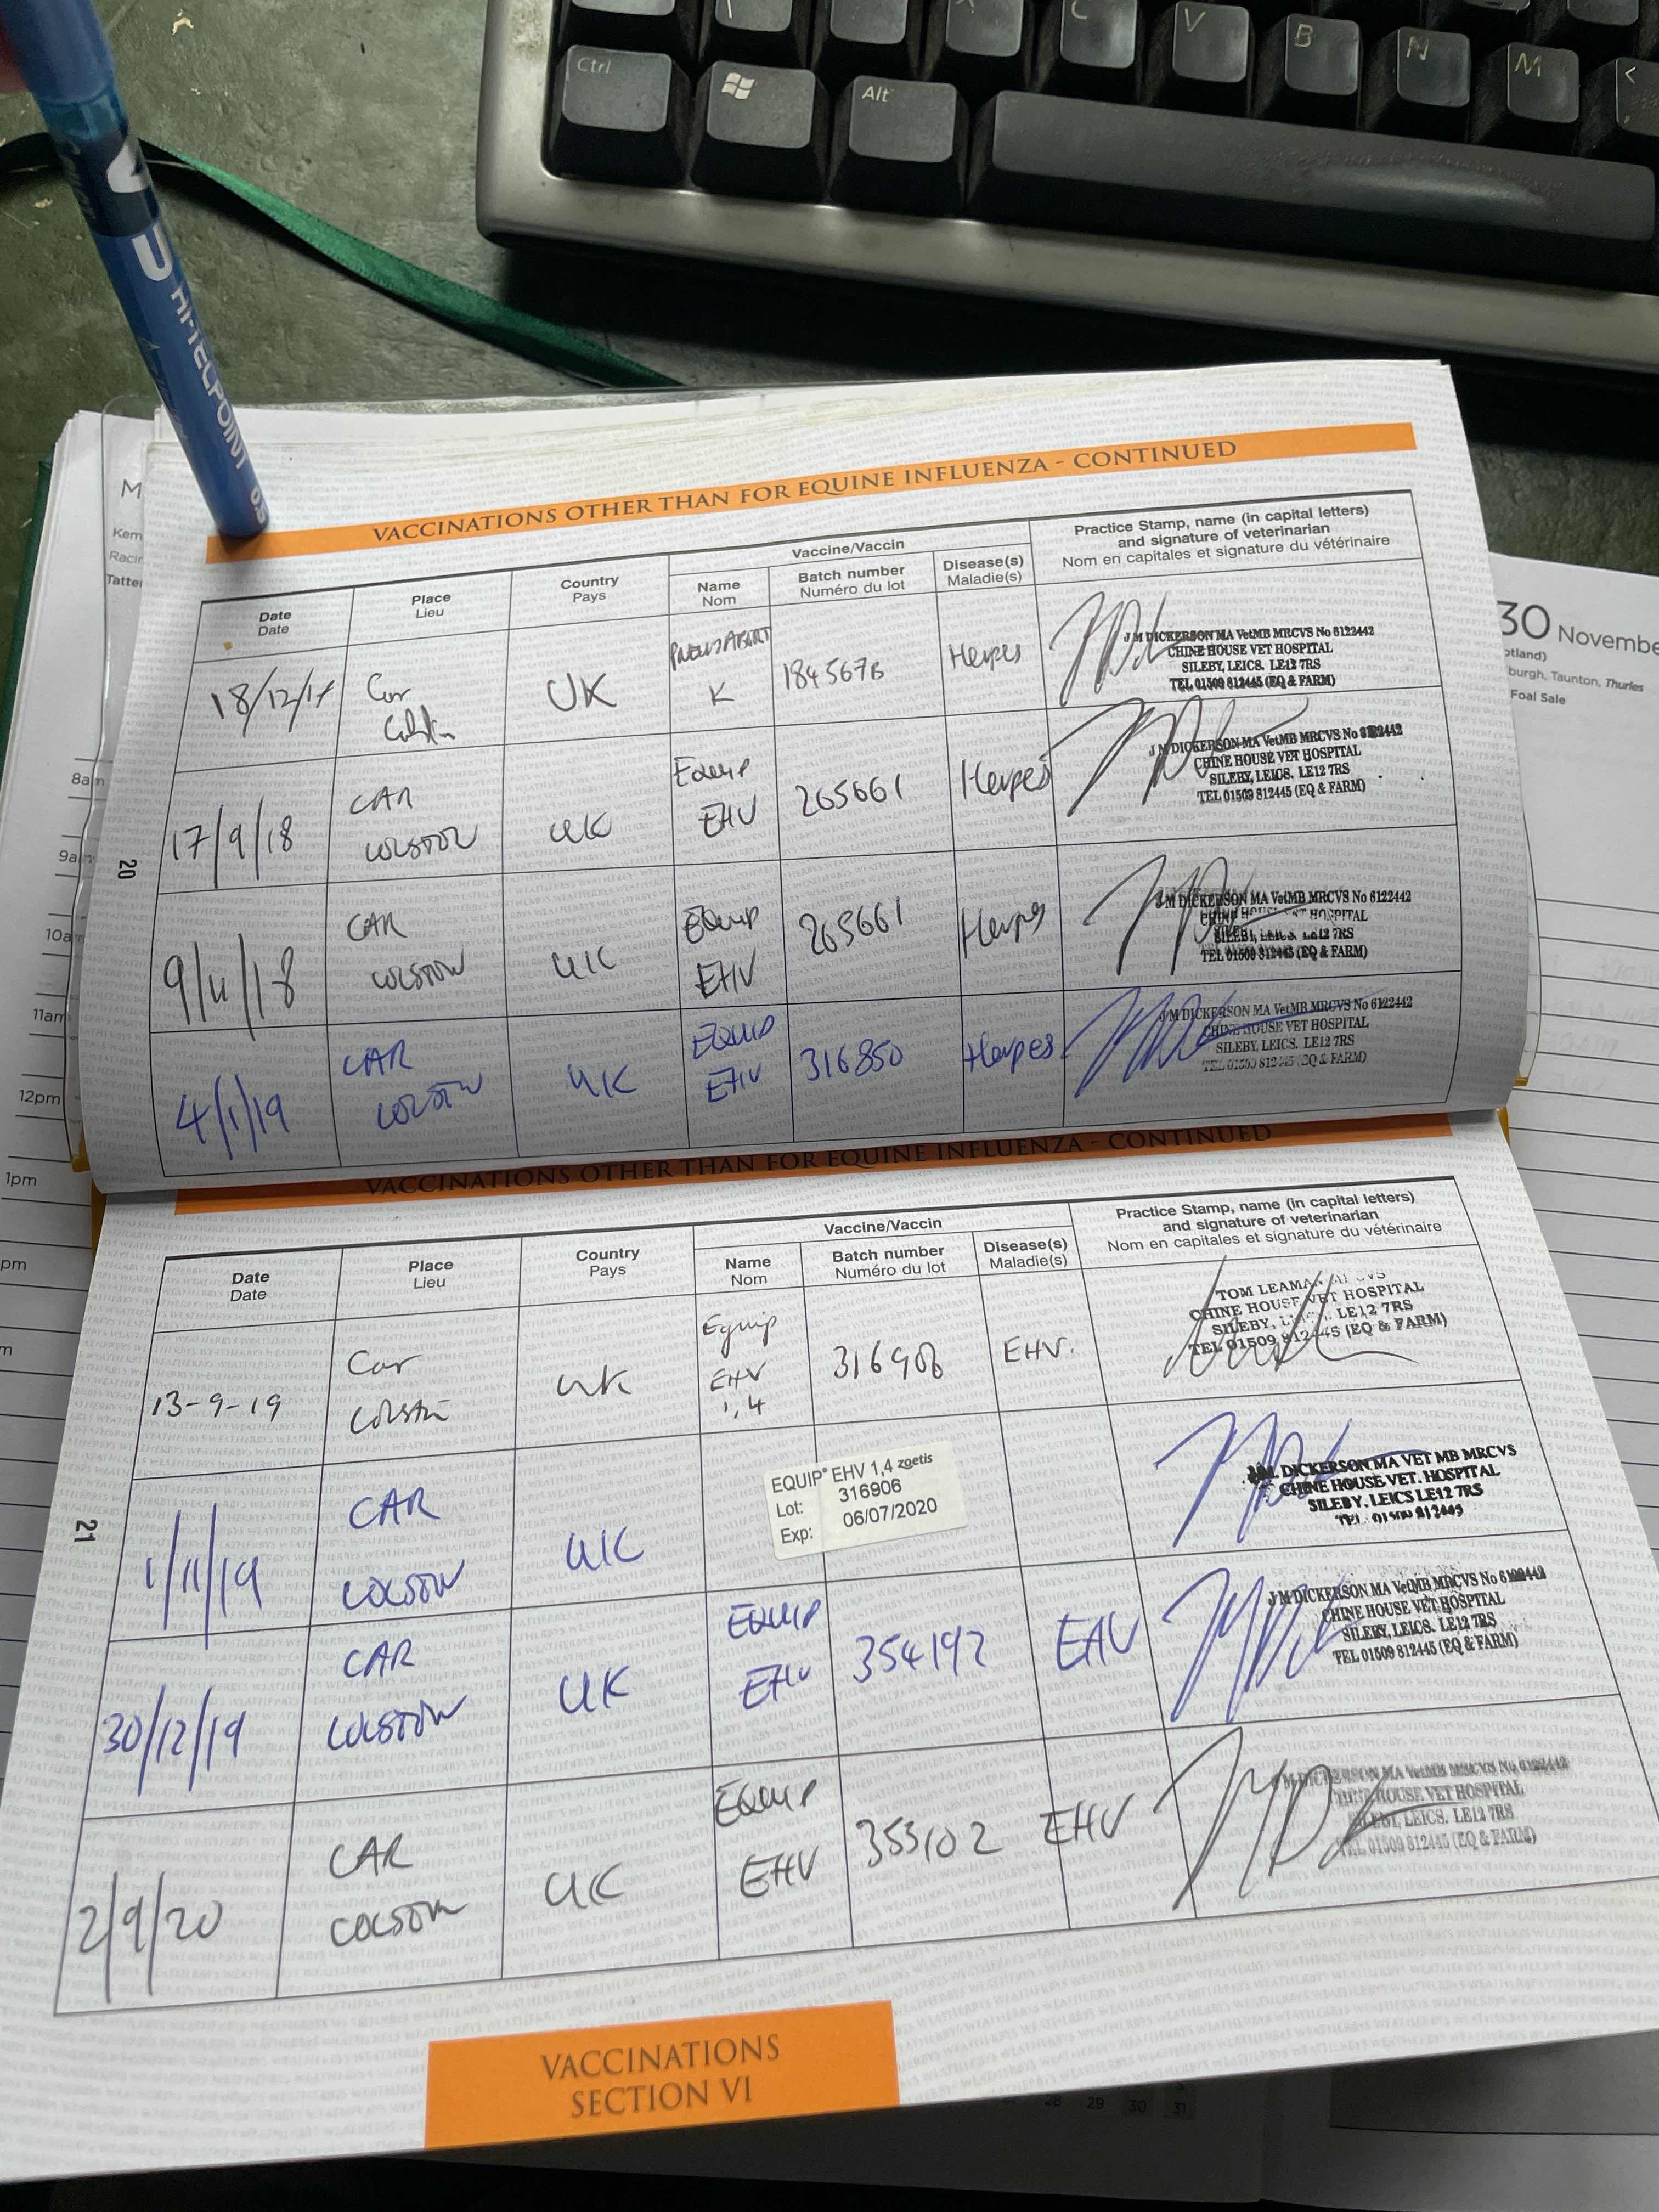 Ctrl
Alt
C
V
B
N
M
<
V5
HI-TECPOINT
0.5
M
Kem
Racin
Tatter
8am
9am
10am
11am
12pm
1pm
pm
m
30 Novembe
otland)
burgh, Taunton, Thurles
Foal Sale
VACCINATIONS OTHER THAN FOR EQUINE INFLUENZA - CONTINUED
Date
Date
Place
Lieu
Country
Pays
Vaccine/Vaccin
Name
Nom
Batch number
Numéro du lot
Disease(s)
Maladie(s)
Practice Stamp, name (in capital letters)
and signature of veterinarian
Nom en capitales et signature du vétérinaire
18/12/17
Car
Colston
UK
PNEUMABORT
K
184567B
Herpes
J M DICKERSON MA VetMB MRCVS No 6122442
CHINE HOUSE VET HOSPITAL
SILEBY, LEICS. LE12 7RS
TEL 01509 812445 (EQ & FARM)
17/9/18
CAR
COLSTON
UK
EQUIP
EHV
265661
Herpes
J M DICKERSON MA VetMB MRCVS No 6122442
CHINE HOUSE VET HOSPITAL
SILEBY, LEICS. LE12 7RS
TEL 01509 812445 (EQ & FARM)
9/11/18
CAR
COLSTON
UK
EQUIP
EHV
265661
Herpes
J M DICKERSON MA VetMB MRCVS No 6122442
CHINE HOUSE VET HOSPITAL
SILEBY, LEICS. LE12 7RS
TEL 01509 812445 (EQ & FARM)
4/1/19
CAR
COLSTON
UK
EQUIP
EHV
316850
Herpes
J M DICKERSON MA VetMB MRCVS No 6122442
CHINE HOUSE VET HOSPITAL
SILEBY, LEICS. LE12 7RS
TEL 01509 812445 (EQ & FARM)
20
VACCINATIONS OTHER THAN FOR EQUINE INFLUENZA - CONTINUED
Date
Date
Place
Lieu
Country
Pays
Vaccine/Vaccin
Name
Nom
Batch number
Numéro du lot
Disease(s)
Maladie(s)
Practice Stamp, name (in capital letters)
and signature of veterinarian
Nom en capitales et signature du vétérinaire
13-9-19
Car
Colston
UK
Equip
EHV
1,4
316906
EHV.
TOM LEAMAN MRCVS
CHINE HOUSE VET HOSPITAL
SILEBY, LE12 7RS
TEL 01509 812445 (EQ & FARM)
1/11/19
CAR
COLSTON
UK
EQUIP® EHV 1,4 zoetis
Lot: 316906
Exp: 06/07/2020
DICKERSON MA VET MB MRCVS
CHINE HOUSE VET. HOSPITAL
SILEBY. LEICS LE12 7RS
30/12/19
CAR
COLSTON
UK
EQUIP
EHV
354192
EHV
J M DICKERSON MA VetMB MRCVS No 6122442
CHINE HOUSE VET HOSPITAL
SILEBY, LEICS. LE12 7RS
TEL 01509 812445 (EQ & FARM)
2/9/20
CAR
COLSTON
UK
EQUIP
EHV
353102
EHV
J M DICKERSON MA VetMB MRCVS No 6122442
CHINE HOUSE VET HOSPITAL
SILEBY, LEICS. LE12 7RS
TEL 01509 812445 (EQ & FARM)
21
VACCINATIONS
SECTION VI
28 29 30 31